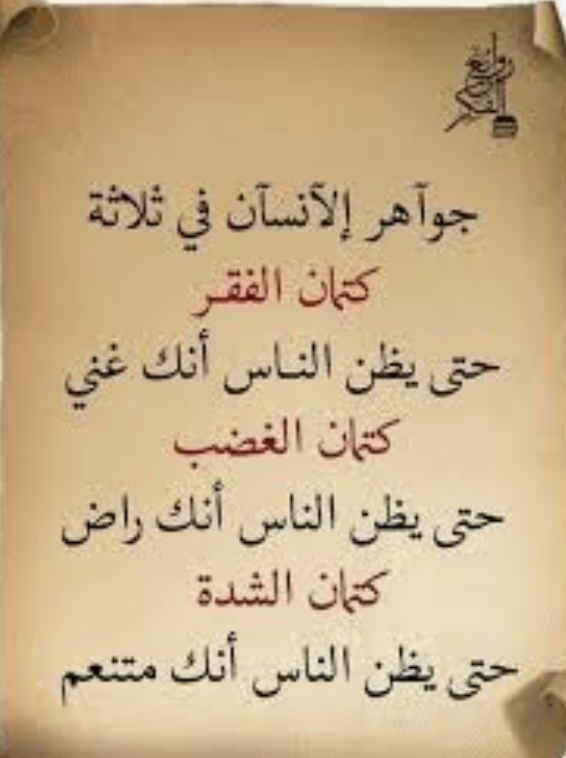 روائع الفكر
جوآهر إلآنسآن في ثلاثة
كتمان الفقر
حتى يظن الناس أنك غني
كتمان الغضب
حتى يظن الناس أنك راض
كتمان الشدة
حتى يظن الناس أنك متنعم